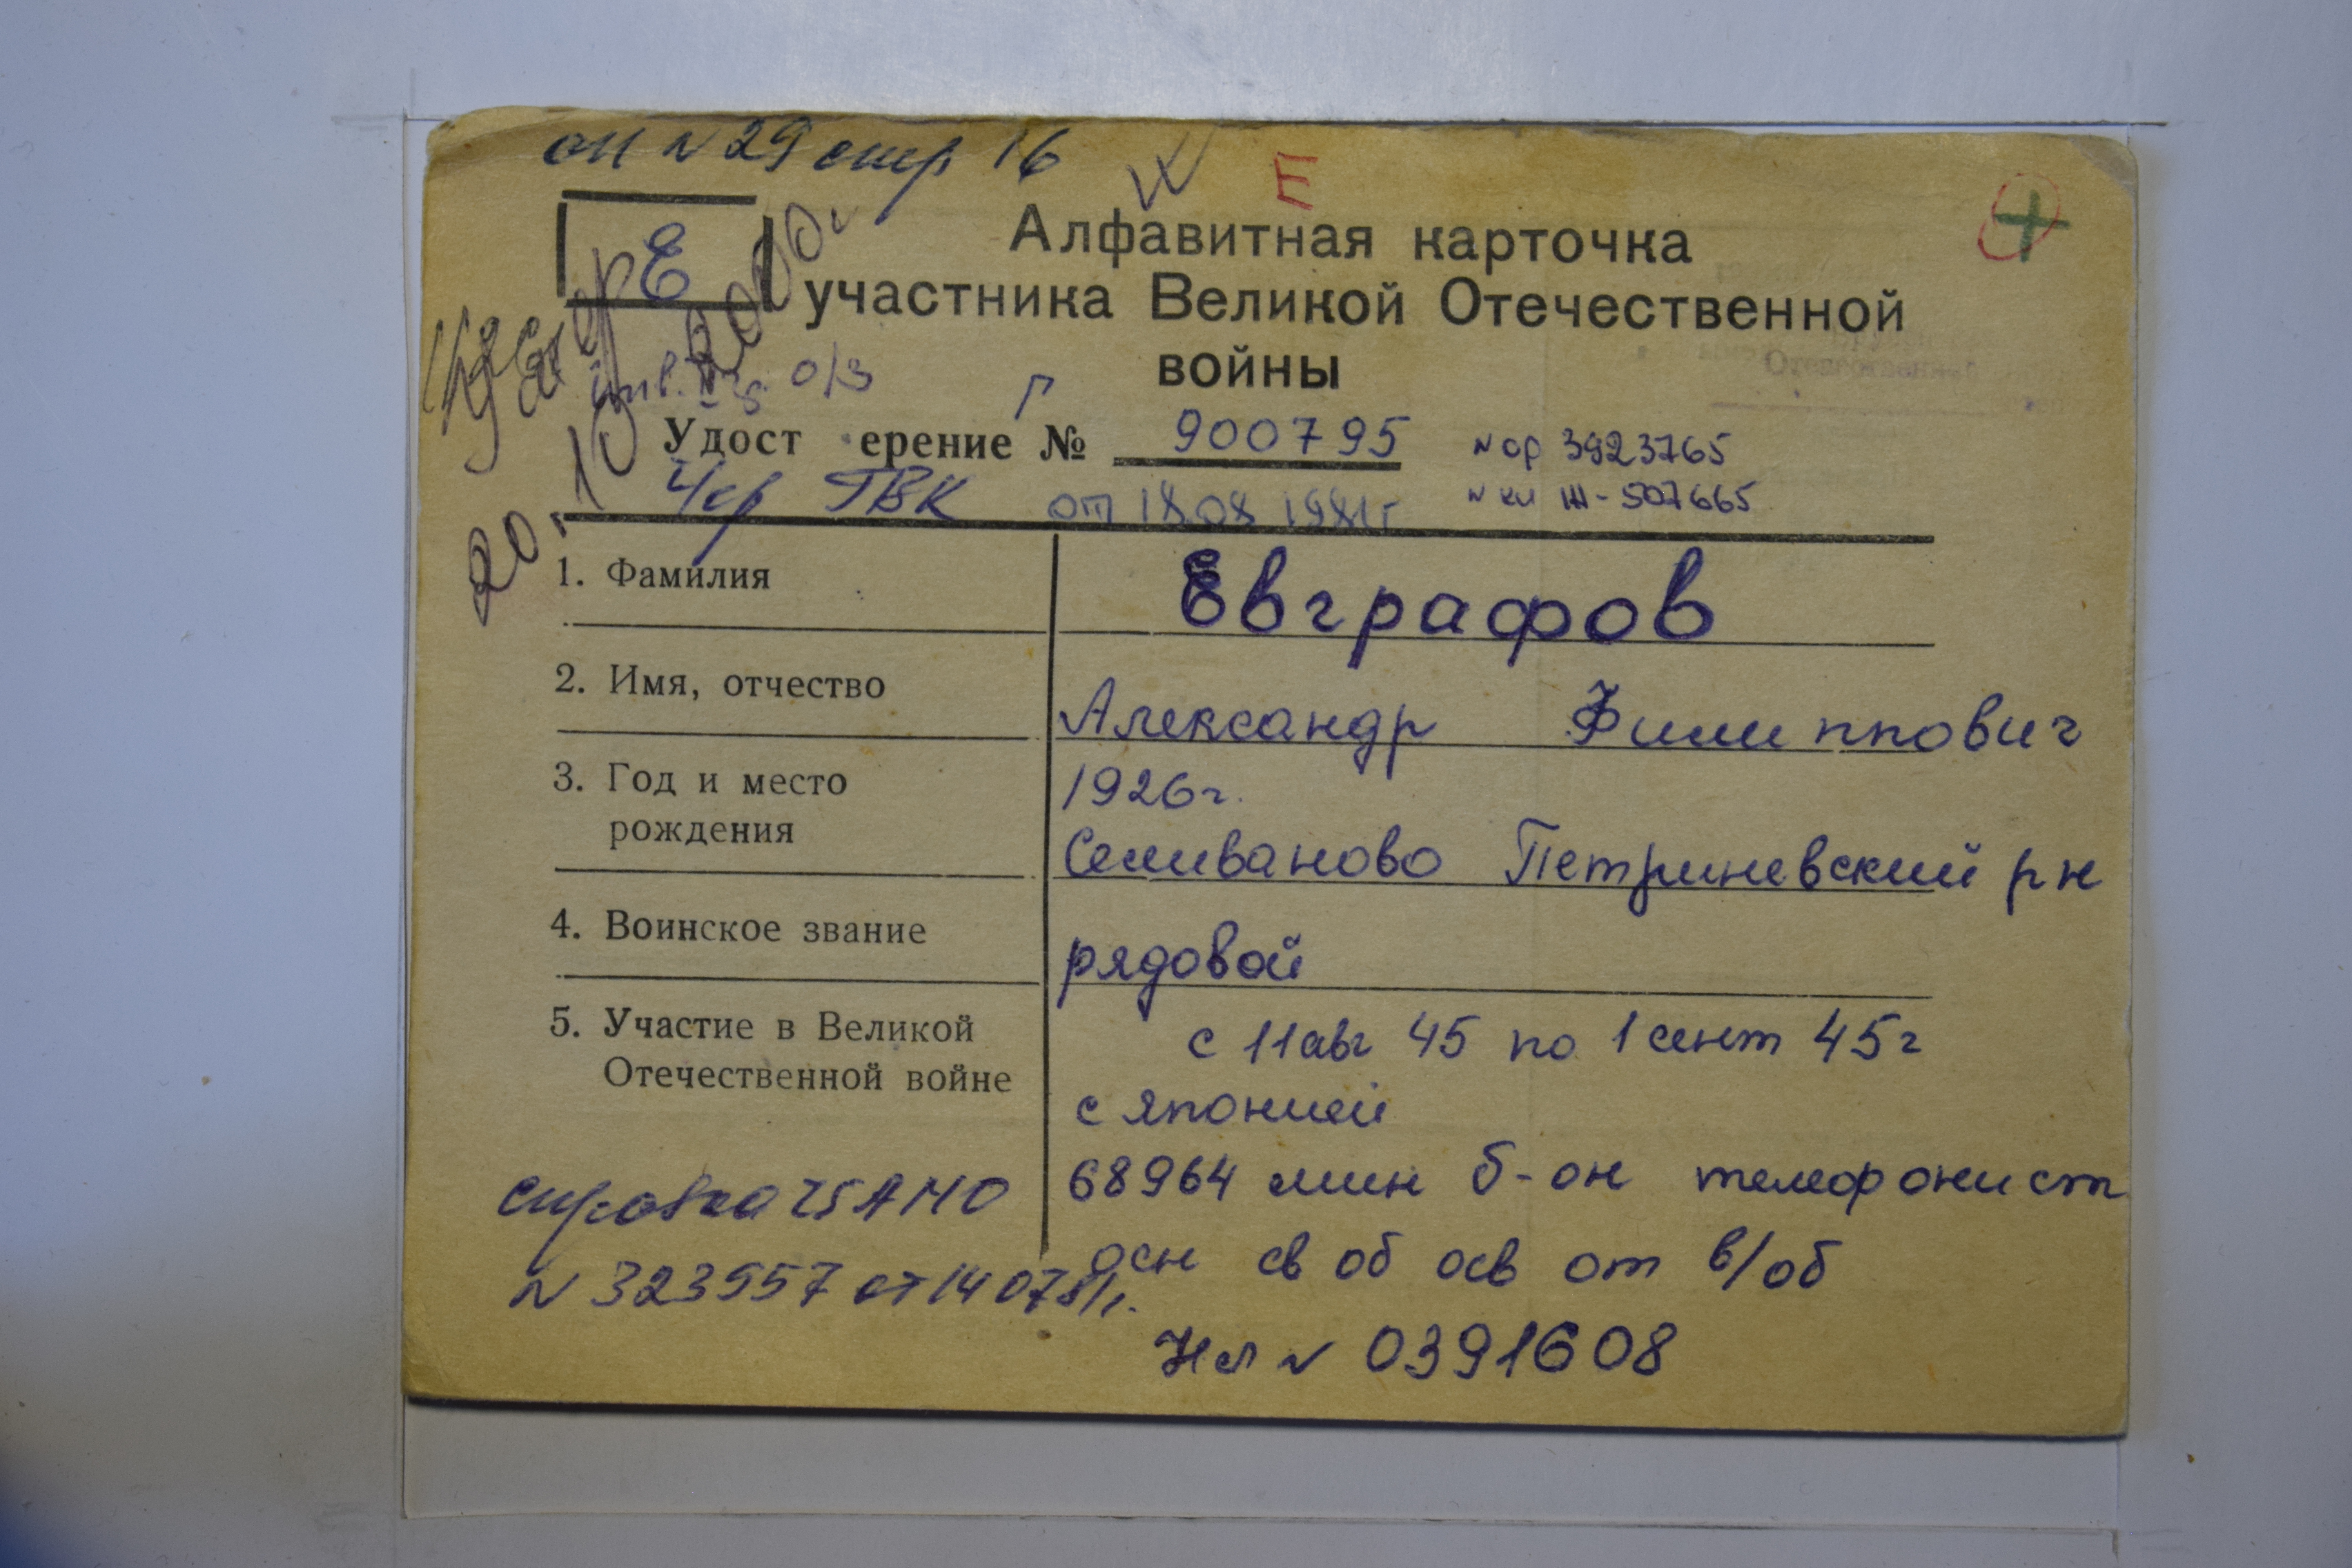 оп N 29 стр 16
Е
Е
Алфавитная карточка
участника Великой Отечественной
войны
20.10 2000г
инв. II гр. о/з
Г
Удост ерение № 900795
N ор 3923765
Чер ГВК от 18.08 1981г
N кн Ш-507665
1. Фамилия
Евграфов
2. Имя, отчество
Александр Филиппович
3. Год и место
рождения
1926г.
Селиваново Петриневский рн
4. Воинское звание
рядовой
5. Участие в Великой
Отечественной войне
с 11 авг 45 по 1 сент 45г
с японией
68964 мин б-он телефонист
осн св об осв от в/об
Нл N 0391608
справка ЦАМО
N 323957 от 14 07 81г.